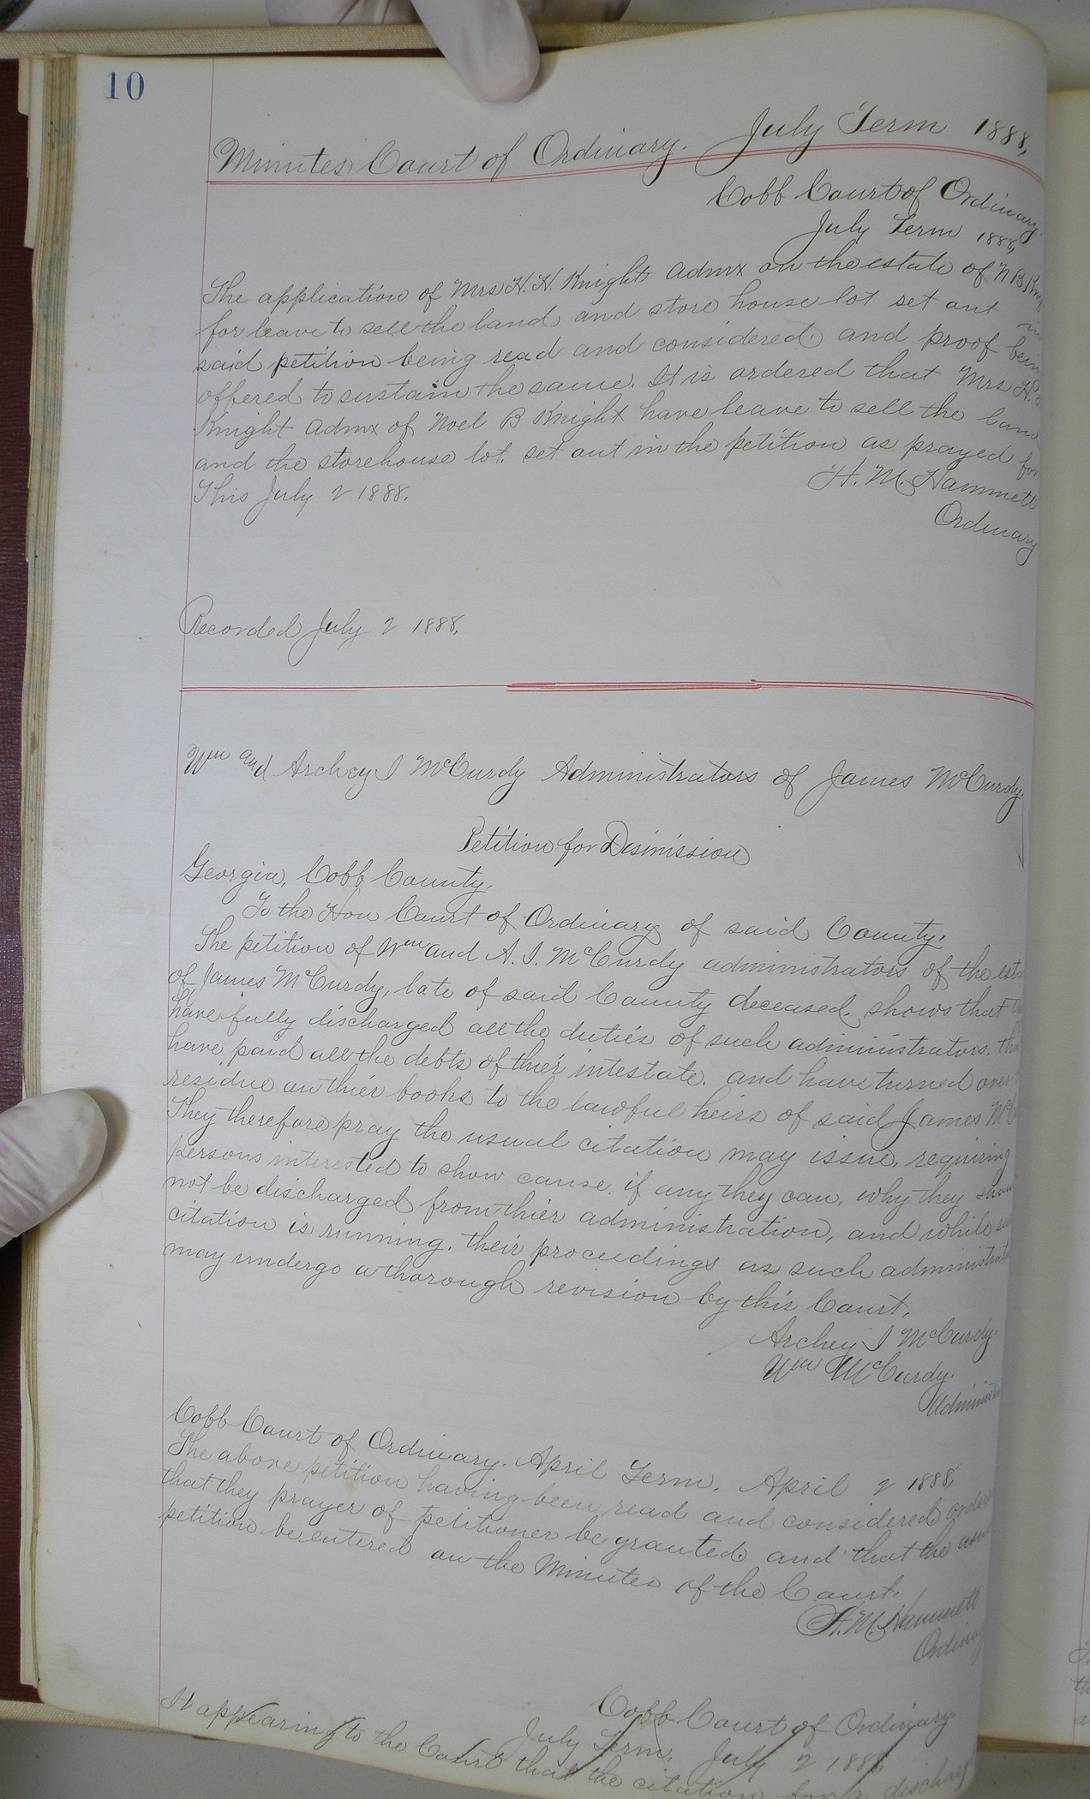 10
Minutes Court of Ordinary. July Term 1888,
Cobb Court of Ordinary.
July Term 1888,
The application of Mrs H. H. Knight Admx on the estate of N B
for leave to sell the land and store house lot set out
said petition being read and considered, and proof being
offered to sustain the same. It is ordered that Mrs H.
Knight Admx of Noel B Knight have leave to sell the land
and the storehouse lot. set out in the petition as prayed for
This July 2 1888.
H. M. Hammett
Ordinary
Recorded July 2 1888,
Wm and Archey I McCurdy Administrators of James McCurdy
Petition for Dismission
Georgia, Cobb County.
To the Hon Court of Ordinary of said County.
The petition of Wm and A. I. McCurdy administrators of the
of James McCurdy, late of said County deceased, shows that
have fully discharged all the duties of such administrators,
have paid all the debts of thier intestate. and have turned over
residue on thier books to the lawful heirs of said James
They therefore pray the usual citation may issue, requiring
persons interested to show cause, if any they can, why they
not be discharged from thier administration, and while
citation is running, their proceedings as such
may undergo a thorough revision by this Court.
Archey I McCurdy
Wm McCurdy.
Cobb Court of Ordinary. April Term. April 2 1888,
The above petition having been read and considered
that they prayer of petitioner be granted. and that the
petition be entered on the Minutes of the Court.
H. M. Hammett
Cobb Court of Ordinary
July Term. July 2 1888
It appearing to the Court that the citation for a